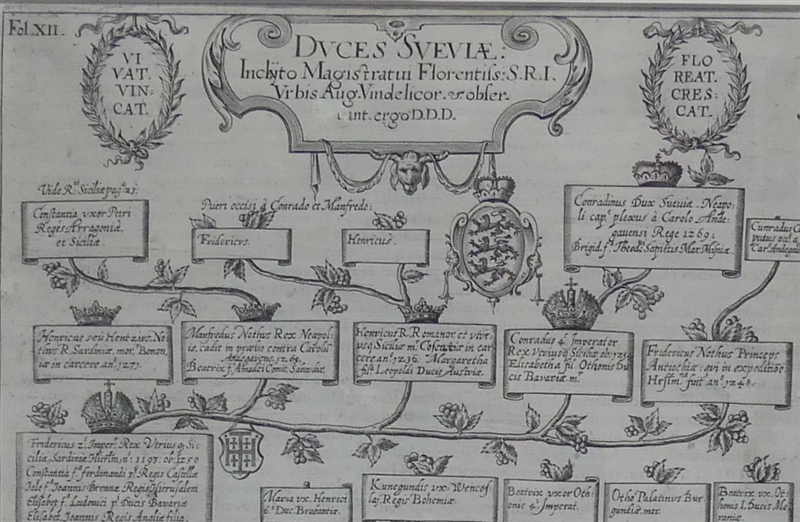 Fol. XII.
VI
VAT.
VIN-
CAT.
DVCES SVEVIÆ:
Inclyto Magistratui Florentiss: S.R.I.
Vrbis Aug. Vindelicor. obser.
int. ergo D.D.D.
FLO
REAT.
CRES-
CAT.
Vide R. Siciliæ pag. 23:
Constantia vxor Petri
Regis Arragoniæ
et Siciliæ
Pueri occisi à Conrado et Manfredo:
Fridericus.
Henricus.
Conradinus Dux Sueviæ. Neapo-
li cap. plexus à Carolo Ande-
gavensi Rege 1269:
Brigid. f. Theod. Sapietis Mar. Misniæ
Henricus seu Hentzius No-
thus R. Sardiniæ. mor. Bonon,
iæ in carcere an. 1273.
Manfredus Nothus Rex Neapol-
is, cadit in prælio contra Carolū
Andegavens. 1269.
Beatrix f. Amadei Comit. Sabaudiæ
Henricus R. Romanor et vtri
usq Siciliæ m. Cosentiæ in car
cere an. 1236. Margaretha
filia Leopoldi Ducis Austriæ.
Conradus 4. Imperator
Rex Vtriusq Siciliæ ob. 1254
Elisabetha fil. Othonis Du
cis Bavariæ m.
Fridericus Nothus Princeps
Antiochiæ: qui in expeditiōe
fuit an. 1248.
Fridericus 2. Imper. Rex Vtrius q. Si-
ciliæ, Sardiniæ Hierlm, n. 1193. ob. 1250
Constantia f. ferdinandi Regis Castellæ
Iole f. Joannis Brennæ Regis Hierusalem
Elisabet f. Ludovici Ducis Bavariæ
Elisabet. Joannis Regis Angliæ filia
Maria vx. Henrici
6. Duc. Brabantiæ.
Kunegundis vx. Wences
laj. Regis Bohemiæ
Beatrix vxor Oth-
onis 4. Imperat.
Otho Palatinus Bur
gundiæ. mor.
Beatrix vx. Ot-
honis I. Ducis Me-
raniæ